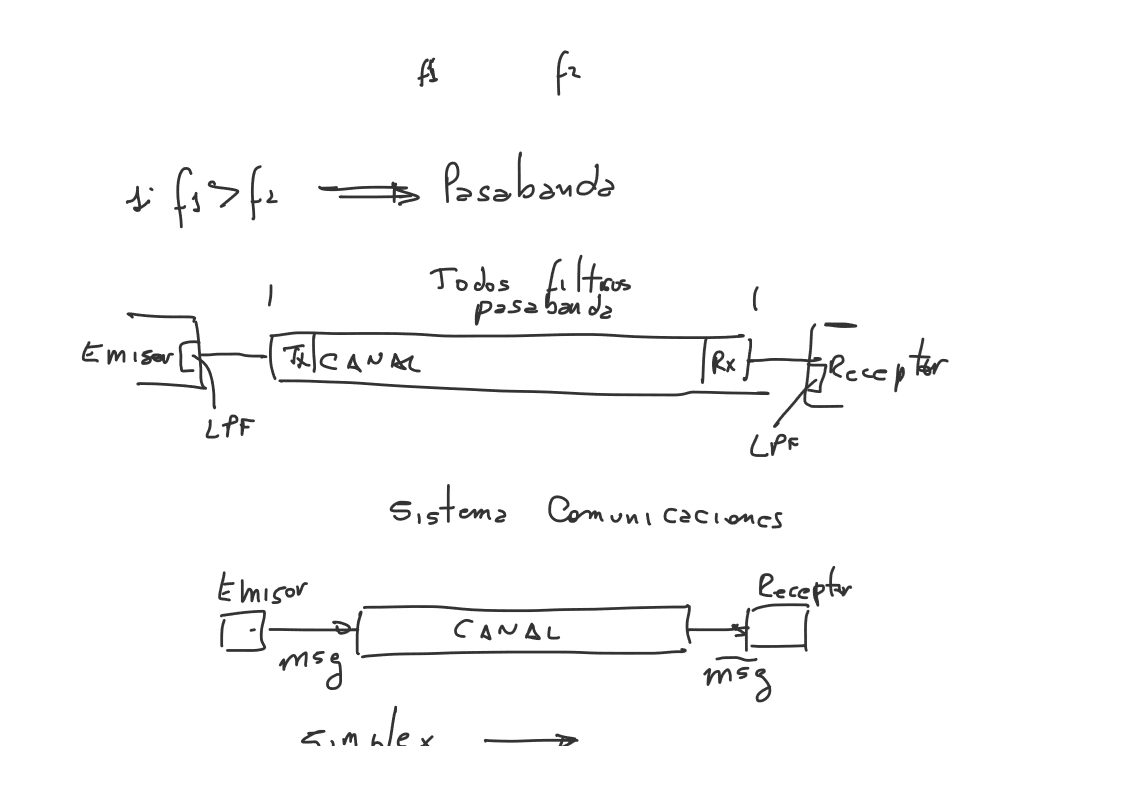 f1 f2
si f1 > f2 ⟹ Pasabanda
Todos filtros
pasabanda
Emisor Tx CANAL Rx Receptor
LPF LPF
Sistema Comunicaciones
Emisor Receptor
CANAL
msg msg
Simplex →